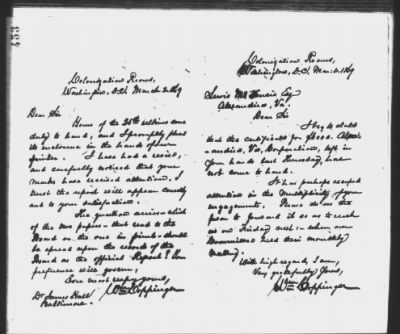 453
Colonization Rooms,
Washington, D.C. March 2. 1869
Dear Sir
Yours of the 25th ultimo came
duly to hand, and I promptly placed
its enclosure in the hands of our
printer. I have had a revise,
and carefully noticed that your
marks have received attention. I
trust the report will appear correctly
and to your satisfaction.
The question arises—which
of the two papers—that read to the
Board or the one in print—should
be spread upon the records of the
Board as the official Report? Your
preference will govern,
Ever most resp'y yours,
Wm Coppinger
Dr James Hall
Baltimore.
Colonization Rooms,
Washington, D.C. Mar. 2. 1869
Lewis McKenzie Esq
Alexandria, Va.
Dear Sir
I beg to state
that the certificate for $1000. Alex-
andria, Va, Corporation, left in
your hands last Thursday, has
not come to hand.
It has perhaps escaped
attention in the multiplicity of your
engagements. Please do me the
favor to send it so as to reach
us on Friday next—when our
Committee hold their monthly
meeting.
With high regard, I am,
Very respectfully Yours,
Wm Coppinger